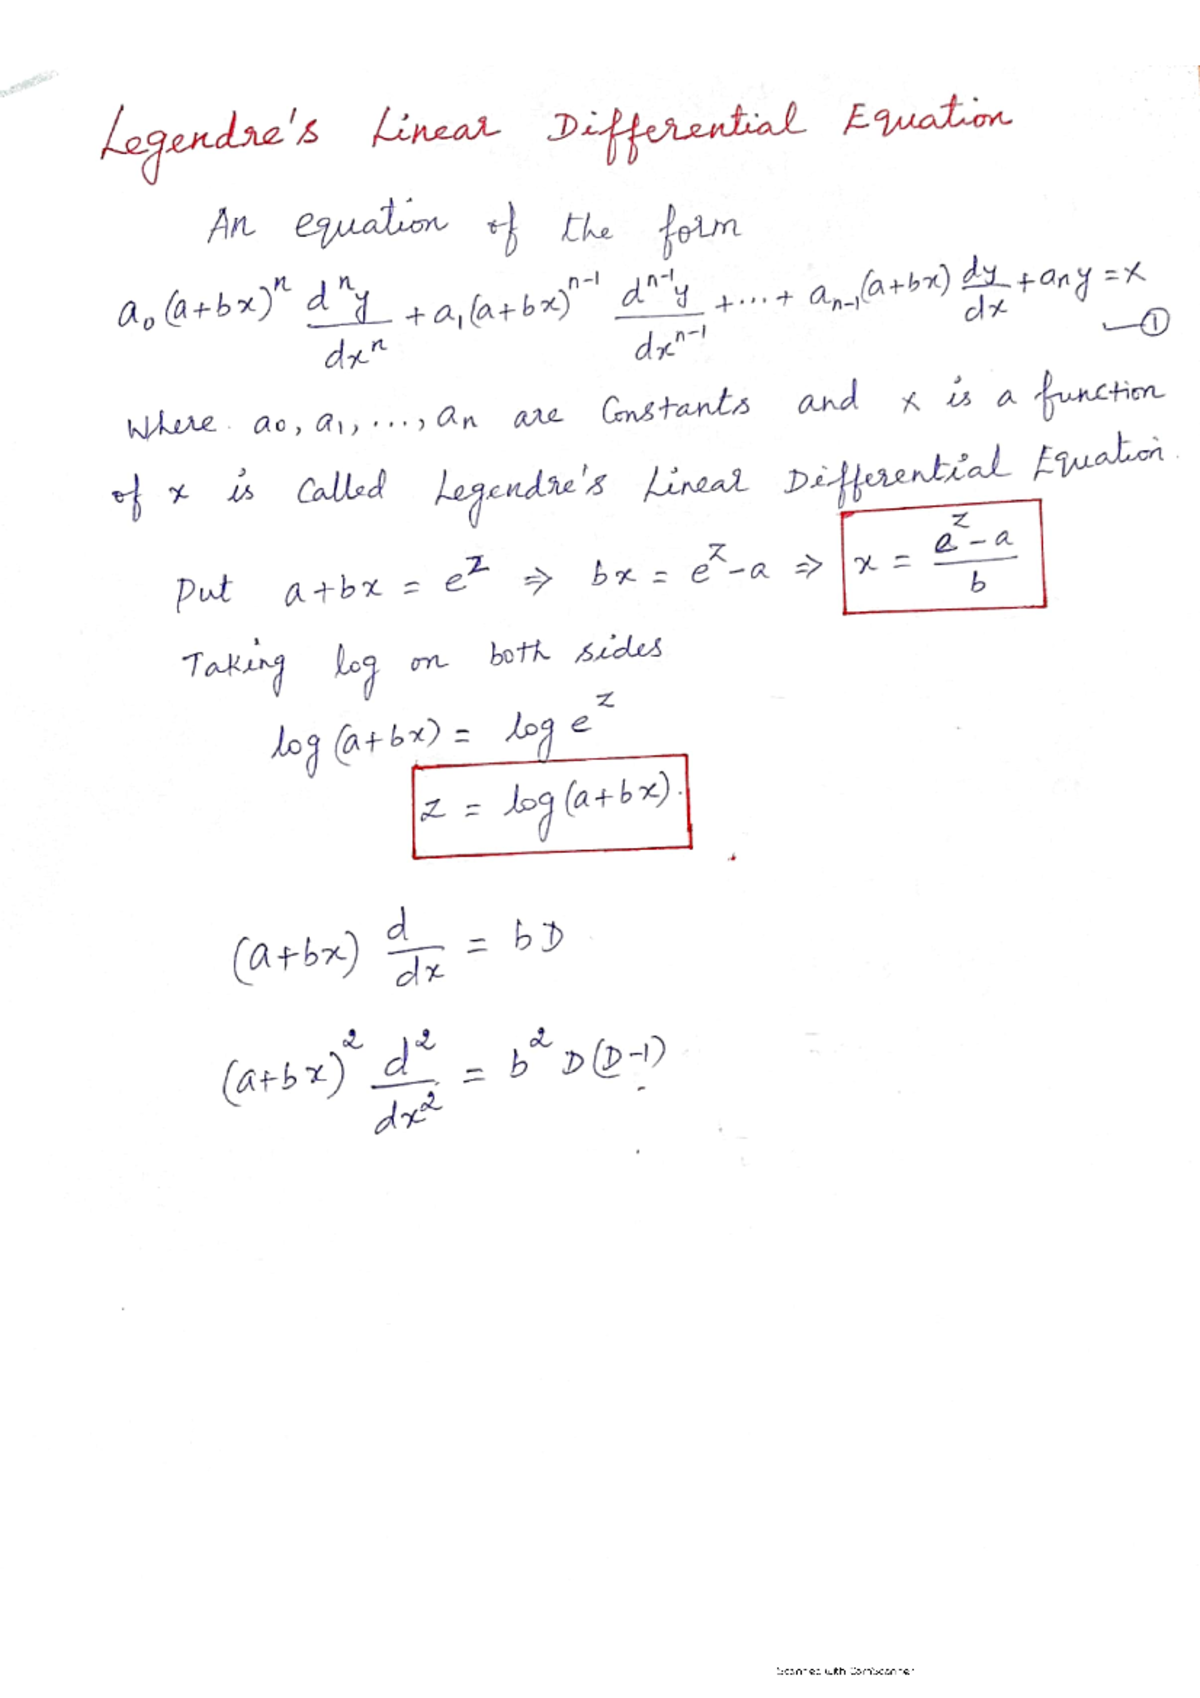 Legendre's Linear Differential Equation
An equation of the form
a₀(a+bx)ⁿ dⁿy/dxⁿ + a₁(a+bx)ⁿ⁻¹ dⁿ⁻¹y/dxⁿ⁻¹ + ... + aₙ₋₁(a+bx) dy/dx + aₙy = X
—①
Where a₀, a₁, ..., aₙ are Constants and x is a function
of x is Called Legendre's Linear Differential Equation.
Put a+bx = e^z ⇒ bx = e^z - a ⇒ x = (e^z - a)/b
Taking log on both sides
log(a+bx) = log e^z
z = log(a+bx).
(a+bx) d/dx = bD
(a+bx)² d²/dx² = b² D(D-1)
Scanned with CamScanner